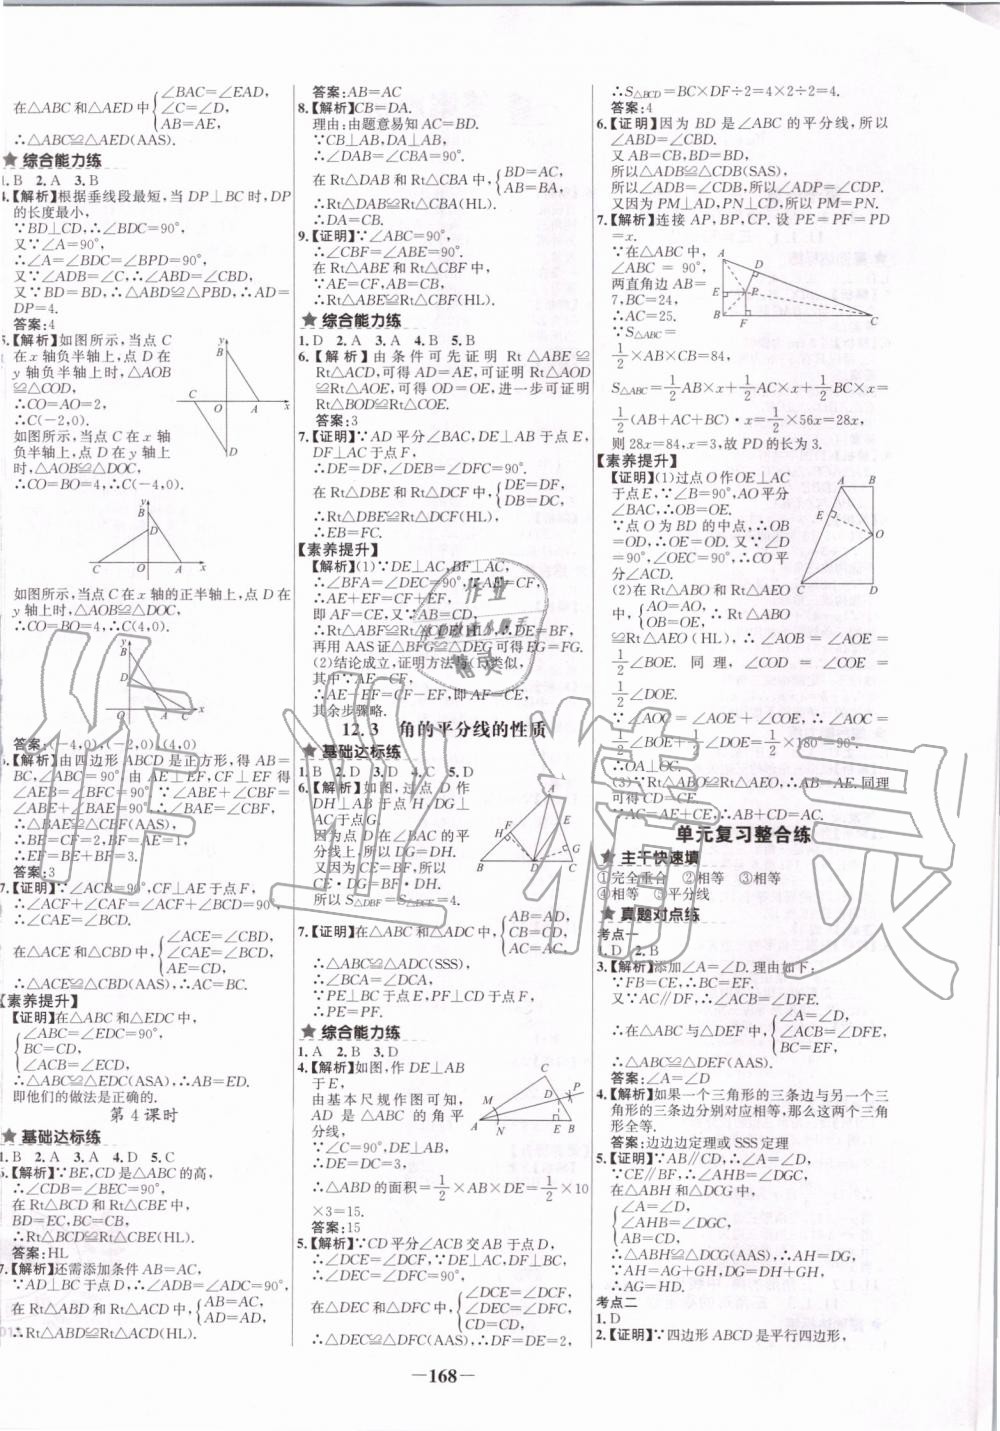 ∠BAC=∠EAD,
在△ABC和△AED中{∠C=∠D,
AB=AE,
∴△ABC≌△AED(AAS).
★ 综合能力练
1. B 2. A 3. B
4.【解析】根据垂线段最短,当 DP⊥BC 时,DP
的长度最小,
∵BD⊥CD,∴∠BDC=90°,
又∵∠A=90°,
∴∠A=∠BDC=∠BPD=90°,
又∵∠ADB=∠C,∴∠ABD=∠CBD,
又∵BD=BD,∴△ABD≌△PBD,∴AD=
DP=4.
答案:4
5.【解析】如图所示,当点 C
在 x 轴负半轴上,点 D 在
y 轴负半轴上时,△AOB
≌△COD,
∴CO=AO=2,
∴C(-2,0).
如图所示,当点 C 在 x 轴
负半轴上,点 D 在 y 轴上
时,△AOB≌△DOC,
∴CO=BO=4,∴C(-4,0).
如图所示,当点 C 在 x 轴的正半轴上,点 D 在
y 轴上时,△AOB≌△DOC,
∴CO=BO=4,∴C(4,0).
答案:(-4,0),(-2,0),(4,0)
6.【解析】由四边形 ABCD 是正方形,得 AB=
BC,∠ABC=90°,由 AE⊥EF,CF⊥EF,得
∠AEB=∠BFC=90°,∠CBF+∠ABE=
∠ABE+∠BAE=90°,∴∠BAE=∠CBF,
∴△BAE≌△CBF(AAS),
∴BE=CF=2,BF=AE=1,
∴EF=BE+BF=3.
答案:3
7.【证明】∵∠ACB=90°,CF⊥AE于点 F,
∴∠ACF+∠CAF=∠ACF+∠BCD=90°,
∴∠CAE=∠BCD.
在△ACE和△CBD中,{∠ACE=∠CBD,
∠CAE=∠BCD,
AE=CD,
∴△ACE≌△CBD(AAS),∴AC=BC.
【素养提升】
【证明】在△ABC和△EDC中,
{∠ABC=∠EDC=90°,
BC=CD,
∠ACB=∠ECD,
∴△ABC≌△EDC(ASA),∴AB=ED.
即他们的做法是正确的.
第 4 课时
★ 基础达标练
1. B 2. B 3. A 4. D 5. C
6.【解析】∵BE,CD是△ABC的高,
∴∠CDB=∠BEC=90°,
在 Rt△BCD 和 Rt△CBE 中,
BD=EC,BC=CB,
∴Rt△BCD≌Rt△CBE(HL).
答案:HL
7.【解析】还需添加条件 AB=AC,
∵AD⊥BC于点D,∴∠ADB=∠ADC=90°,
在 Rt△ABD 和 Rt△ACD 中,{AB=AC,
AD=AD,
∴Rt△ABD≌Rt△ACD(HL).
答案:AB=AC
8.【解析】CB=DA.
理由:由题意易知 AC=BD.
∵CB⊥AB,DA⊥AB,
∴∠DAB=∠CBA=90°.
在 Rt△DAB 和 Rt△CBA 中,{BD=AC,
AB=BA,
∴Rt△DAB≌Rt△CBA(HL).
∴DA=CB.
9.【证明】∵∠ABC=90°,
∴∠CBF=∠ABE=90°.
在 Rt△ABE 和 Rt△CBF 中,
∵AE=CF,AB=CB,
∴Rt△ABE≌Rt△CBF(HL).
★ 综合能力练
1. D 2. A 3. A 4. B 5. B
6.【解析】由条件可先证明 Rt△ABE≌
Rt△ACD,可得 AD=AE,可证明 Rt△AOD
≌Rt△AOE,可得 OD=OE,进一步可证明
Rt△BOD≌Rt△COE.
答案:3
7.【证明】∵AD平分∠BAC,DE⊥AB于点 E,
DF⊥AC于点 F,
∴DE=DF,∠DEB=∠DFC=90°.
在 Rt△DBE 和 Rt△DCF 中,{DE=DF,
DB=DC,
∴Rt△DBE≌Rt△DCF(HL),
∴EB=FC.
【素养提升】
【解析】(1)∵DE⊥AC,BF⊥AC,
∴∠BFA=∠DEC=90°,∵AE=CF,
∴AE+EF=CF+EF,
即 AF=CE,又∵AB=CD,
∴Rt△ABF≌Rt△CDE(HL),∴DE=BF,
再用 AAS证△BFG≌△DEG可得 EG=FG.
(2)结论成立,证明方法与(1)类似,
其中∵AE=CF,
∴AE-EF=CF-EF,即 AF=CE,
其余步骤略.
12.3 角的平分线的性质
★ 基础达标练
1. B 2. D 3. D 4. C 5. D
6.【解析】如图,过点 D 作
DH⊥AB于点 H,DG⊥
AC于点G.
因为点 D 在∠BAC的平
分线上,所以 DH=DG.
又因为 CE=BF,所以
CE·DG=BF·DH.
所以 S△DBF=S△DCE=4.
7.【证明】在△ABC和△ADC中,{AB=AD,
CB=CD,
AC=AC,
∴△ABC≌△ADC(SSS),
∴∠BCA=∠DCA,
∵PE⊥BC于点 E,PF⊥CD于点 F,
∴PE=PF.
★ 综合能力练
1. A 2. B 3. D
4.【解析】如图,作 DE⊥AB
于 E,
由基本尺规作图可知,
AD 是△ABC 的角平
分线,
∵∠C=90°,DE⊥AB,
∴DE=DC=3,
∴△ABD的面积=1/2×AB×DE=1/2×10
×3=15.
答案:15
5.【解析】∵CD平分∠ACB交 AB于点 D,
∴∠DCE=∠DCF,∵DE⊥AC,DF⊥BC,
∴∠DEC=∠DFC=90°,
在△DEC和△DFC中,{∠DCE=∠DCF,
∠DEC=∠DFC,
CD=CD,
∴△DEC≌△DFC(AAS),∴DF=DE=2,
∴S△BCD=BC×DF÷2=4×2÷2=4.
答案:4
6.【证明】因为 BD 是∠ABC 的平分线,所以
∠ABD=∠CBD.
又 AB=CB,BD=BD,
所以△ABD≌△CBD(SAS),
所以∠ADB=∠CDB,所以∠ADP=∠CDP.
又因为 PM⊥AD,PN⊥CD,所以 PM=PN.
7.【解析】连接 AP,BP,CP. 设 PE=PF=PD
=x.
∵在△ABC中,
∠ABC=90°,
两直角边 AB=
7,BC=24,
∴AC=25.
∵S△ABC=
1/2×AB×CB=84,
S△ABC=1/2AB×x+1/2AC×x+1/2BC×x=
1/2(AB+AC+BC)·x=1/2×56x=28x,
则 28x=84,x=3,故 PD 的长为 3.
【素养提升】
【证明】(1)过点 O作OE⊥AC
于点 E,∵∠B=90°,AO平分
∠BAC,∴OB=OE.
∵点 O为 BD的中点,∴OB
=OD,∴OE=OD.又∵∠D
=90°,∠OEC=90°,∴CO平
分∠ACD.
(2)在 Rt△ABO 和 Rt△AEO
中,{AO=AO,
OB=OE,∴Rt△ABO≌
Rt△AEO(HL),∴∠AOB=∠AOE=
1/2∠BOE. 同理,∠COD=∠COE=
1/2∠DOE.
∵∠AOC=∠AOE+∠COE,∴∠AOC=
1/2∠BOE+1/2∠DOE=1/2×180°=90°.
∴OA⊥OC.
(3)∵Rt△ABO≌Rt△AEO,∴AB=AE,同理
可得 CD=CE.
∵AC=AE+CE,∴AB+CD=AC.
单元复习整合练
★ 主干快速填
①完全重合 ②相等 ③相等
④相等 ⑤平分线
★ 真题对点练
考点一
1. D 2. B
3.【解析】添加∠A=∠D. 理由如下:
∵FB=CE,∴BC=EF.
又∵AC∥DF,∴∠ACB=∠DFE.
∴在△ABC与△DEF中,{∠A=∠D,
∠ACB=∠DFE,
BC=EF,
∴△ABC≌△DEF(AAS).
答案:∠A=∠D
4.【解析】如果一个三角形的三条边与另一个三
角形的三条边分别对应相等,那么这两个三角
形全等.
答案:边边边定理或 SSS定理
5.【证明】∵AB∥CD,∴∠A=∠D,
∵CE∥BF,∴∠AHB=∠DGC,
在△ABH和△DCG中,
{∠A=∠D,
∠AHB=∠DGC,
AB=DC,
∴△ABH≌△DCG(AAS),∴AH=DG,
∵AH=AG+GH,DG=DH+GH,
∴AG=HD.
考点二
1. D
2.【证明】∵四边形 ABCD是平行四边形,
—168—